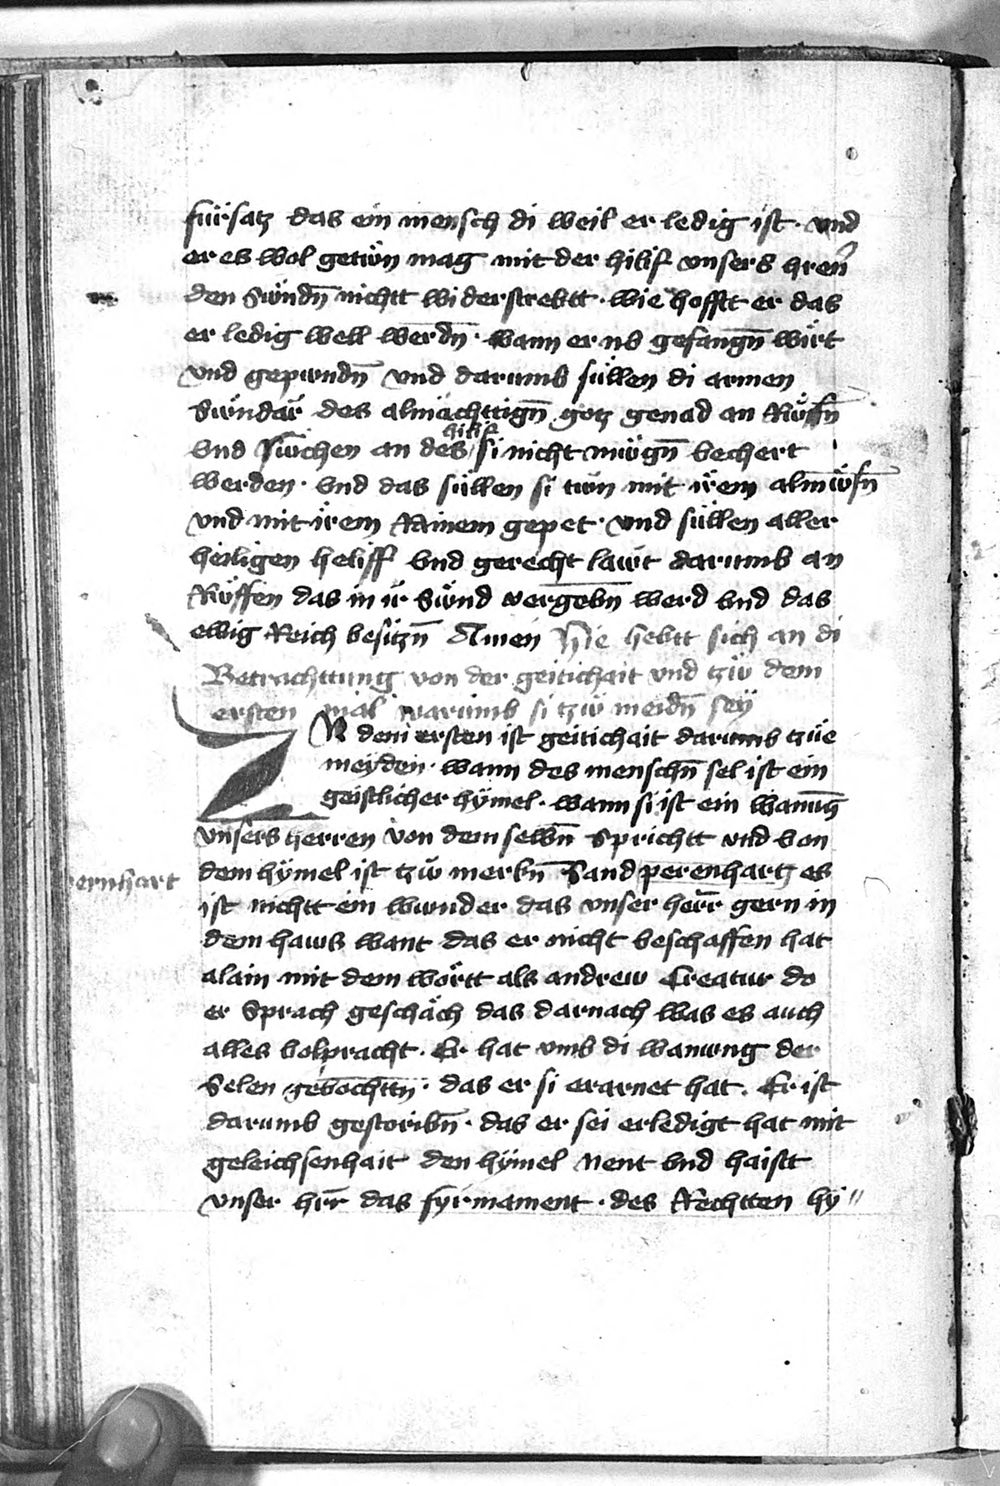 fürsatz das ein mensch di weil er ledig ist · vnd
er es wol getün mag mit der hilif vnsers hren̄
den sündn̄ nichtt widerstrebtt · wie hofftt er das
er ledig well werdn̄ · wann er nb gefangn̄ wirt
vnd gepundn̄ vnd darumb süllen di armen
Sündär des almächttign̄ gotz genad an Rüffn̄
vnd suchen an des hilif si nicht mügn̄ bechert
werden · vnd das süllen si tün mit irem almüsn̄
vnd mit irem Rainem gepet · vnd süllen aller
heiligen heliff vnd gerecht lawt darumb an
Rüffen das in ir Sünd vergebn̄ werd vnd das
ewig Reich besitzn̄ Amen Hie hebtt sich an di
Betrachttung von der geitichait vnd tzü dem
ersten mal warumb si tzü meidn̄ sey
ZV dem ersten ist geitichait darumb tzüe
meyden · wann des menschn̄ sel ist ein
geistlicher hymel · wann si ist ein wanung
vnsers herren von dem selbn̄ Sprichtt vnd von
dem hymel ist tzü merkn̄ Sand perenhartz es
ernhart
ist nichtt ein wunder das vnser herr gern in
dem haws want das er nicht beschaffen hat
alain mit dem wortt als andrew Creatur do
er Sprach geschäch das darnach was es auch
alles volpracht · Er hat vmb di wanung der
Selen gevochttn̄ · das er si erarnet hat . Er ist
darumb gestoribn̄ · das er sei erledigt hat mit
geleichsenhait den hymel nent vnd haistt
vnser hrr̄ das fyrmament · des Rechtten hy //